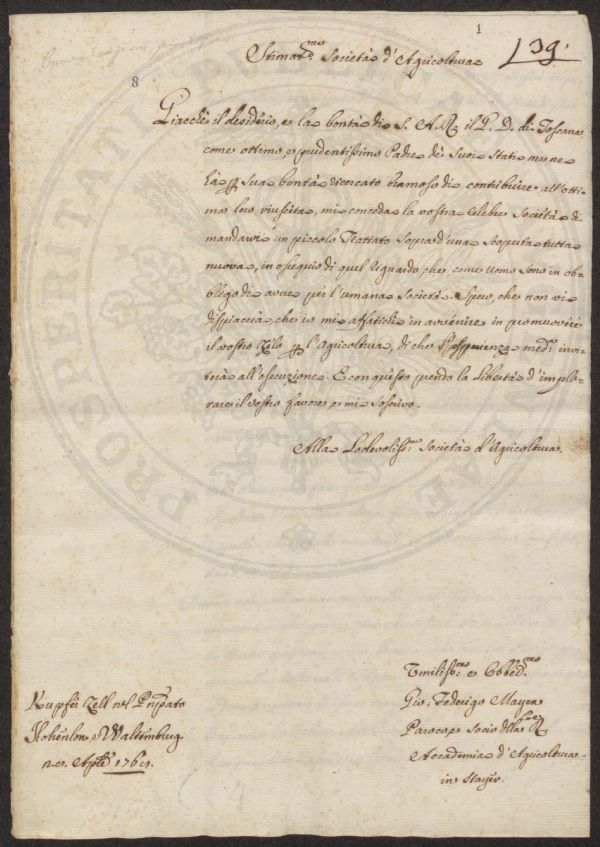 1
139.
8
Stimat.mo Società d'Agricoltura
Giacchè il desiderio, e la bontà di S. A. R. il P. D. di Toscana
come ottimo, e prudentissimo Padre de' Suoi Stati
hà Sua bontà ricercato bramoso di contribuire all'otti-
ma loro riuscita, mi conceda la vostra Celebre Società di
mandarvi un piccolo Trattato Sopra d'una Scoperta tutta
nuova, in ossequio di quel riguardo che come Uomo Sono in ob-
bligo di avere per l'umana Società. Spero, che non vi
dispiacerà, che io mi affatichi in avvenire in promuovere
il vostro Zelo l'Agricoltura, di che l'esperienza med.a invi-
terà all'esecuzione. E con questo prendo la libertà d'implo-
rare il vostro favore, e mi Soscrivo.
Alla Lodevoliss.ma Società d'Agricoltura
Umiliss.mo e Obbed.mo
Gio: Federigo Mayer
Paroco, e Socio della
Accademia d'Agricoltura
in
Kupfer Zell nel Prnpato
Hohenloe Waltenburg
Aple 176
PROSPERITATI PUBLICAE